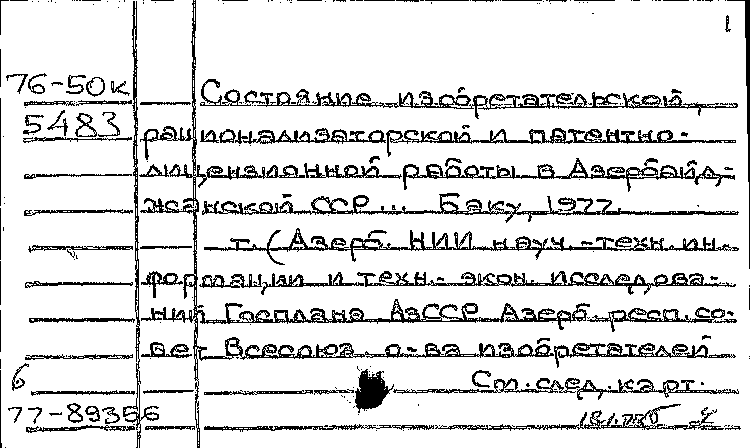 1
76-50к Состояние изобретательской,
5483 рационализаторской и патентно-
лицензионной работы в Азербайд-
жанской ССР... Баку, 1977.
т. (Азерб. НИИ науч.-техн. ин-
формации и техн.- экон. исследова-
ний Госплана АзССР Азерб. респ. со-
вет Всесоюз. о-ва изобретателей
6 См. след. карт.
77-89356